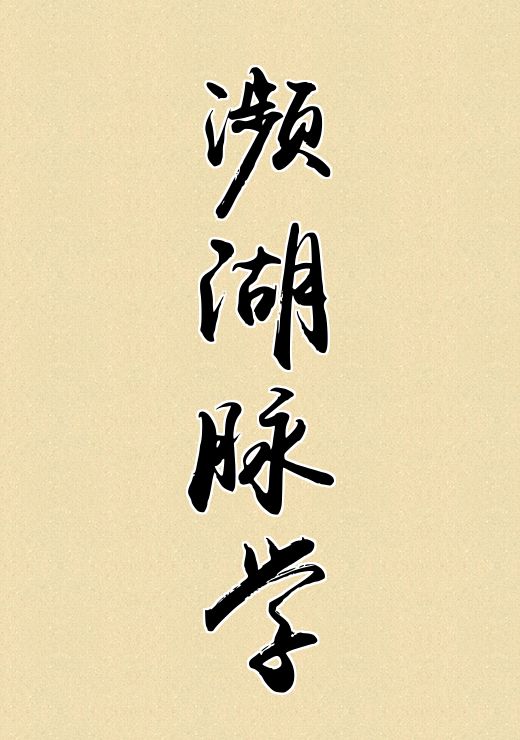 濒湖脉学